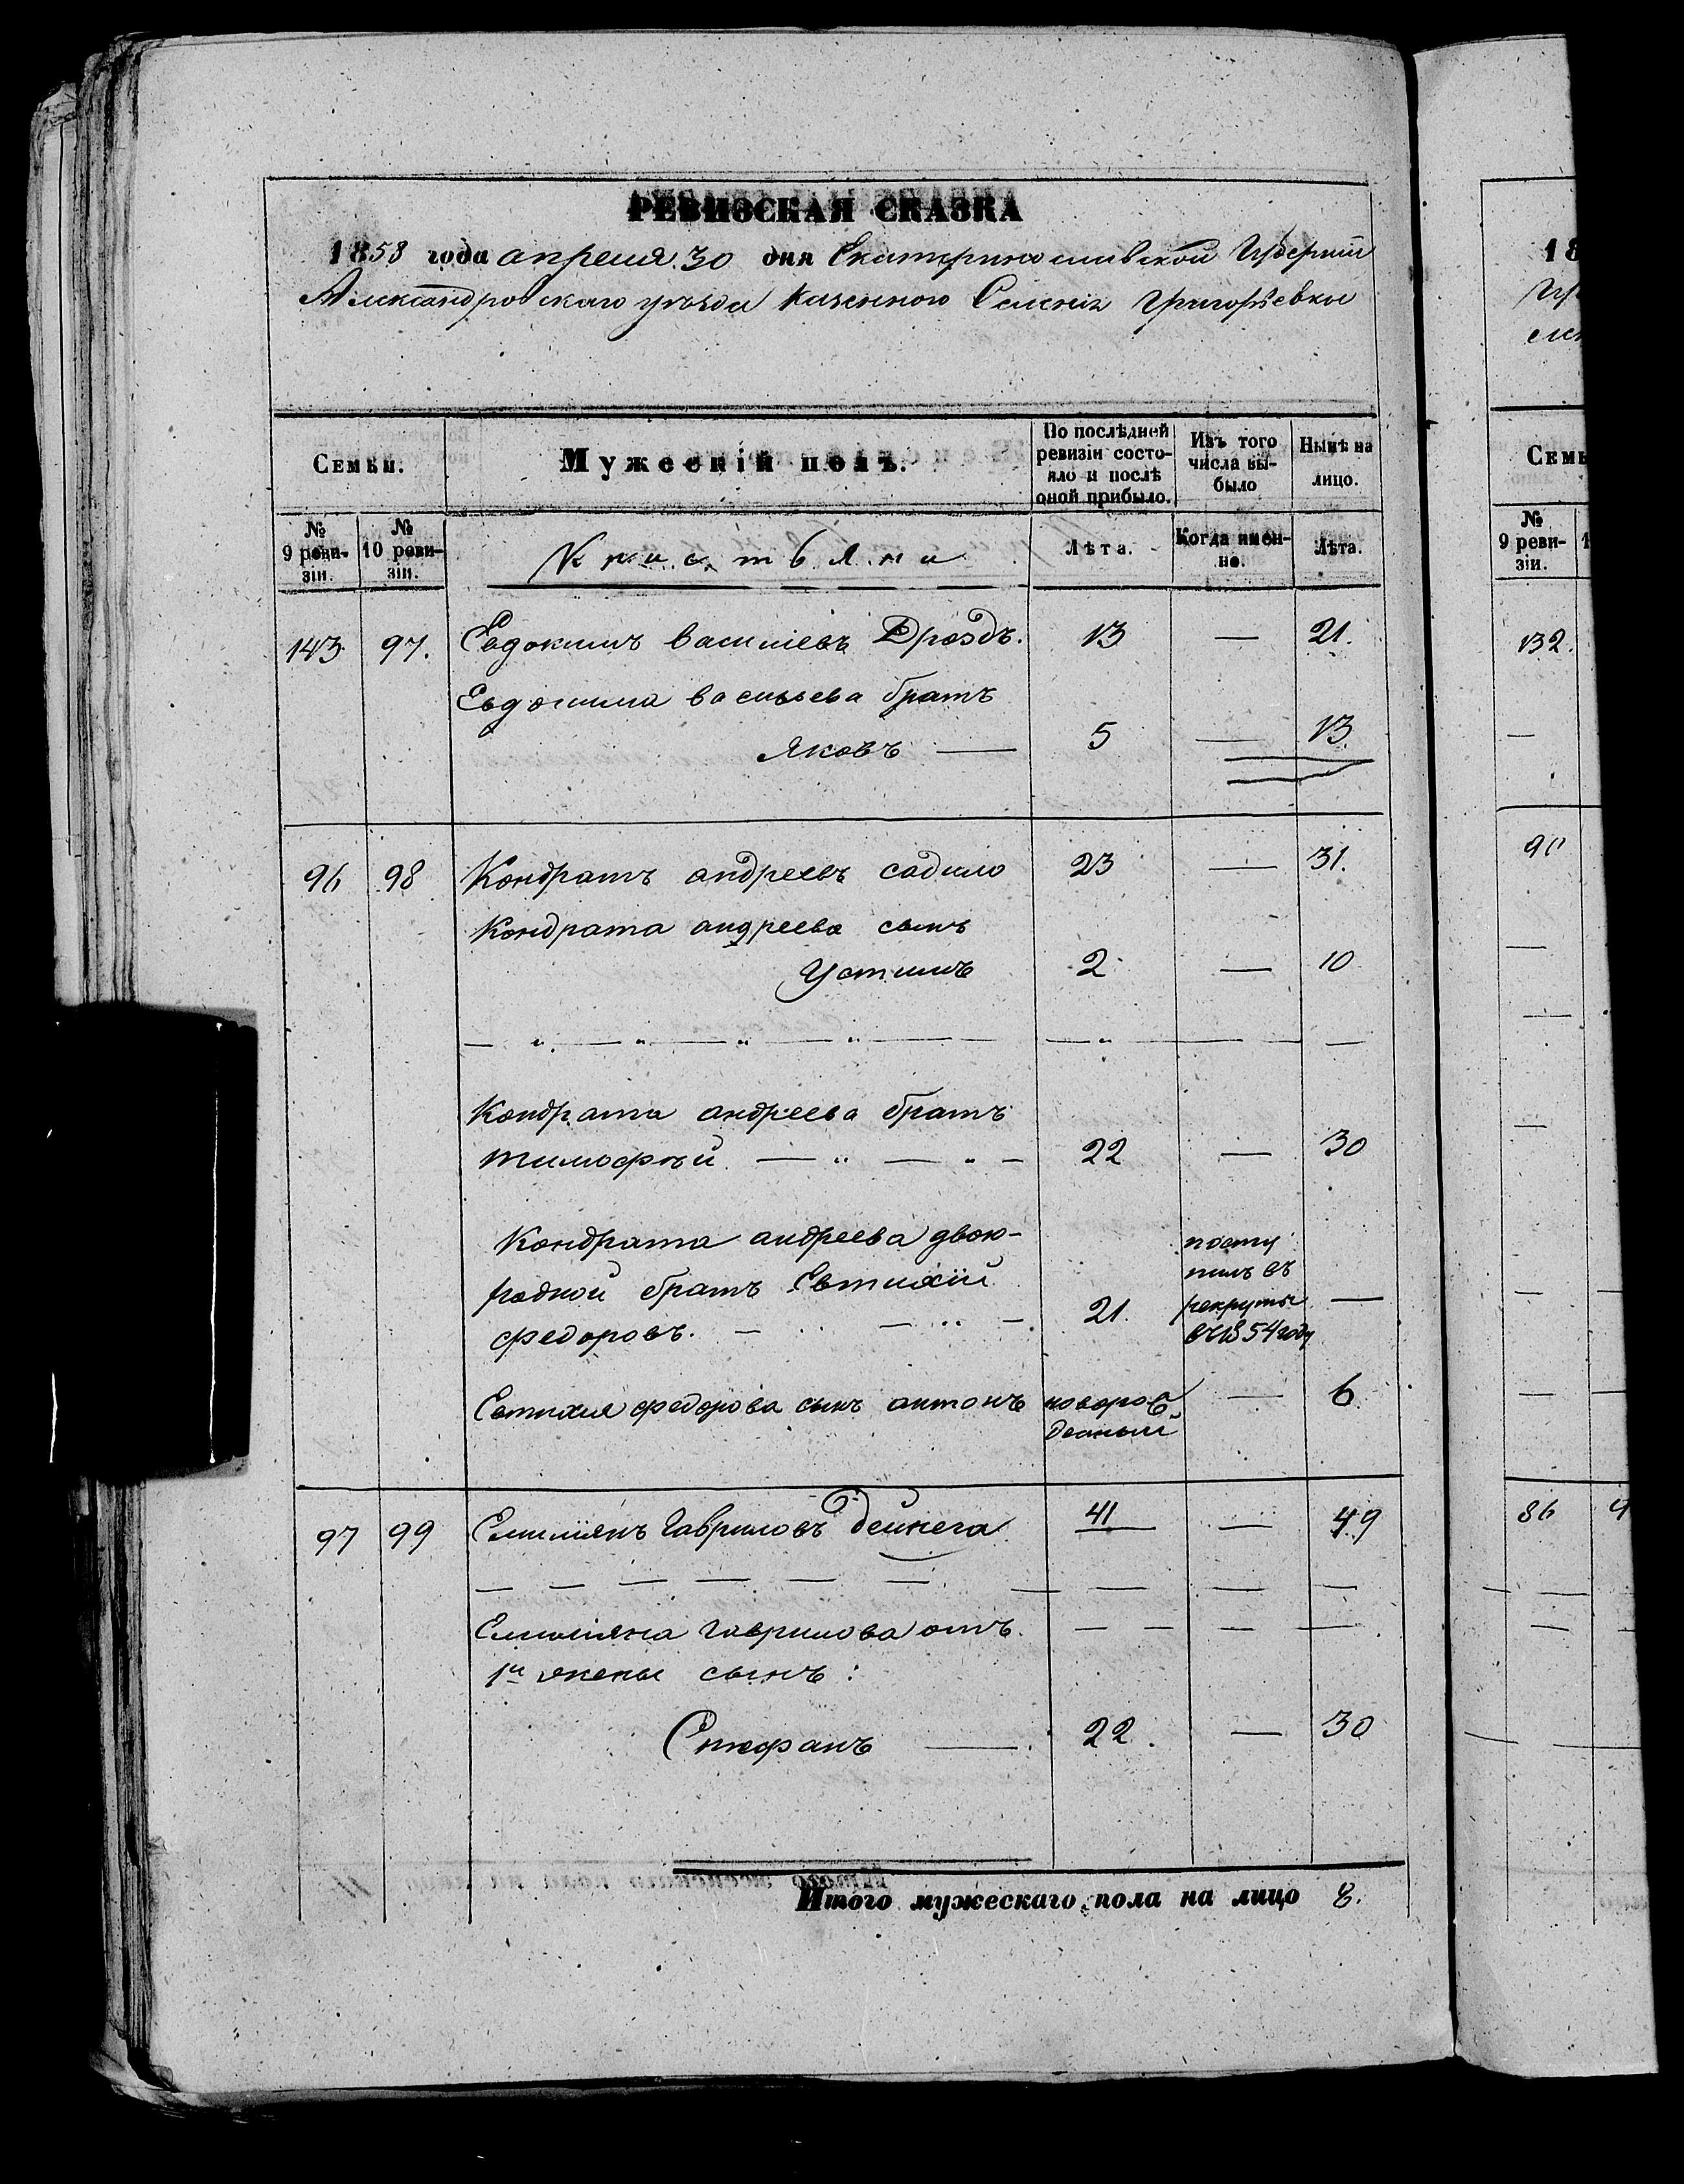 РЕВИЗСКАЯ СКАЗКА
1858 года апреля 30 дня Екатеринославской Губернии
Александровскаго уѣзда казенного Селенія Григорьевки
Семьи.
Мужескій полъ.
По послѣдней ревизіи состояло и послѣ оной прибыло.
Изъ того числа выбыло
Нынѣ на лицо.
№ 9 реви-зіи.
№ 10 реви-зіи.
Крестьяне
Лѣта.
Когда имен-но.
Лѣта.
143 97. Евдокимъ васильевъ Дроздъ. 13 — 21.
Евдокима васильева братъ
Яковъ — 5 — 13
96 98 Кондратъ андреевъ садило 23 — 31.
Кондрата андреева сынъ
Устимъ 2 — 10
Кондрата андреева братъ
тимофѣй — " — " — 22 — 30
Кондрата андреева двою-
родной братъ Евтихій
федоровъ. — " — " — 21. посту пилъ въ рекруты въ 1854 году —
Евтихия федорова сынъ антонъ новорожденный — 6
97 99 Емилиянъ Гавриловъ дейнега 41 — 49
Емилияна гаврилова отъ.
1й жены сынъ:
Стефанъ — 22. — 30
Итого мужескаго пола на лицо 8.
18
Семь
№ 9 реви-зіи.
132.
90
86